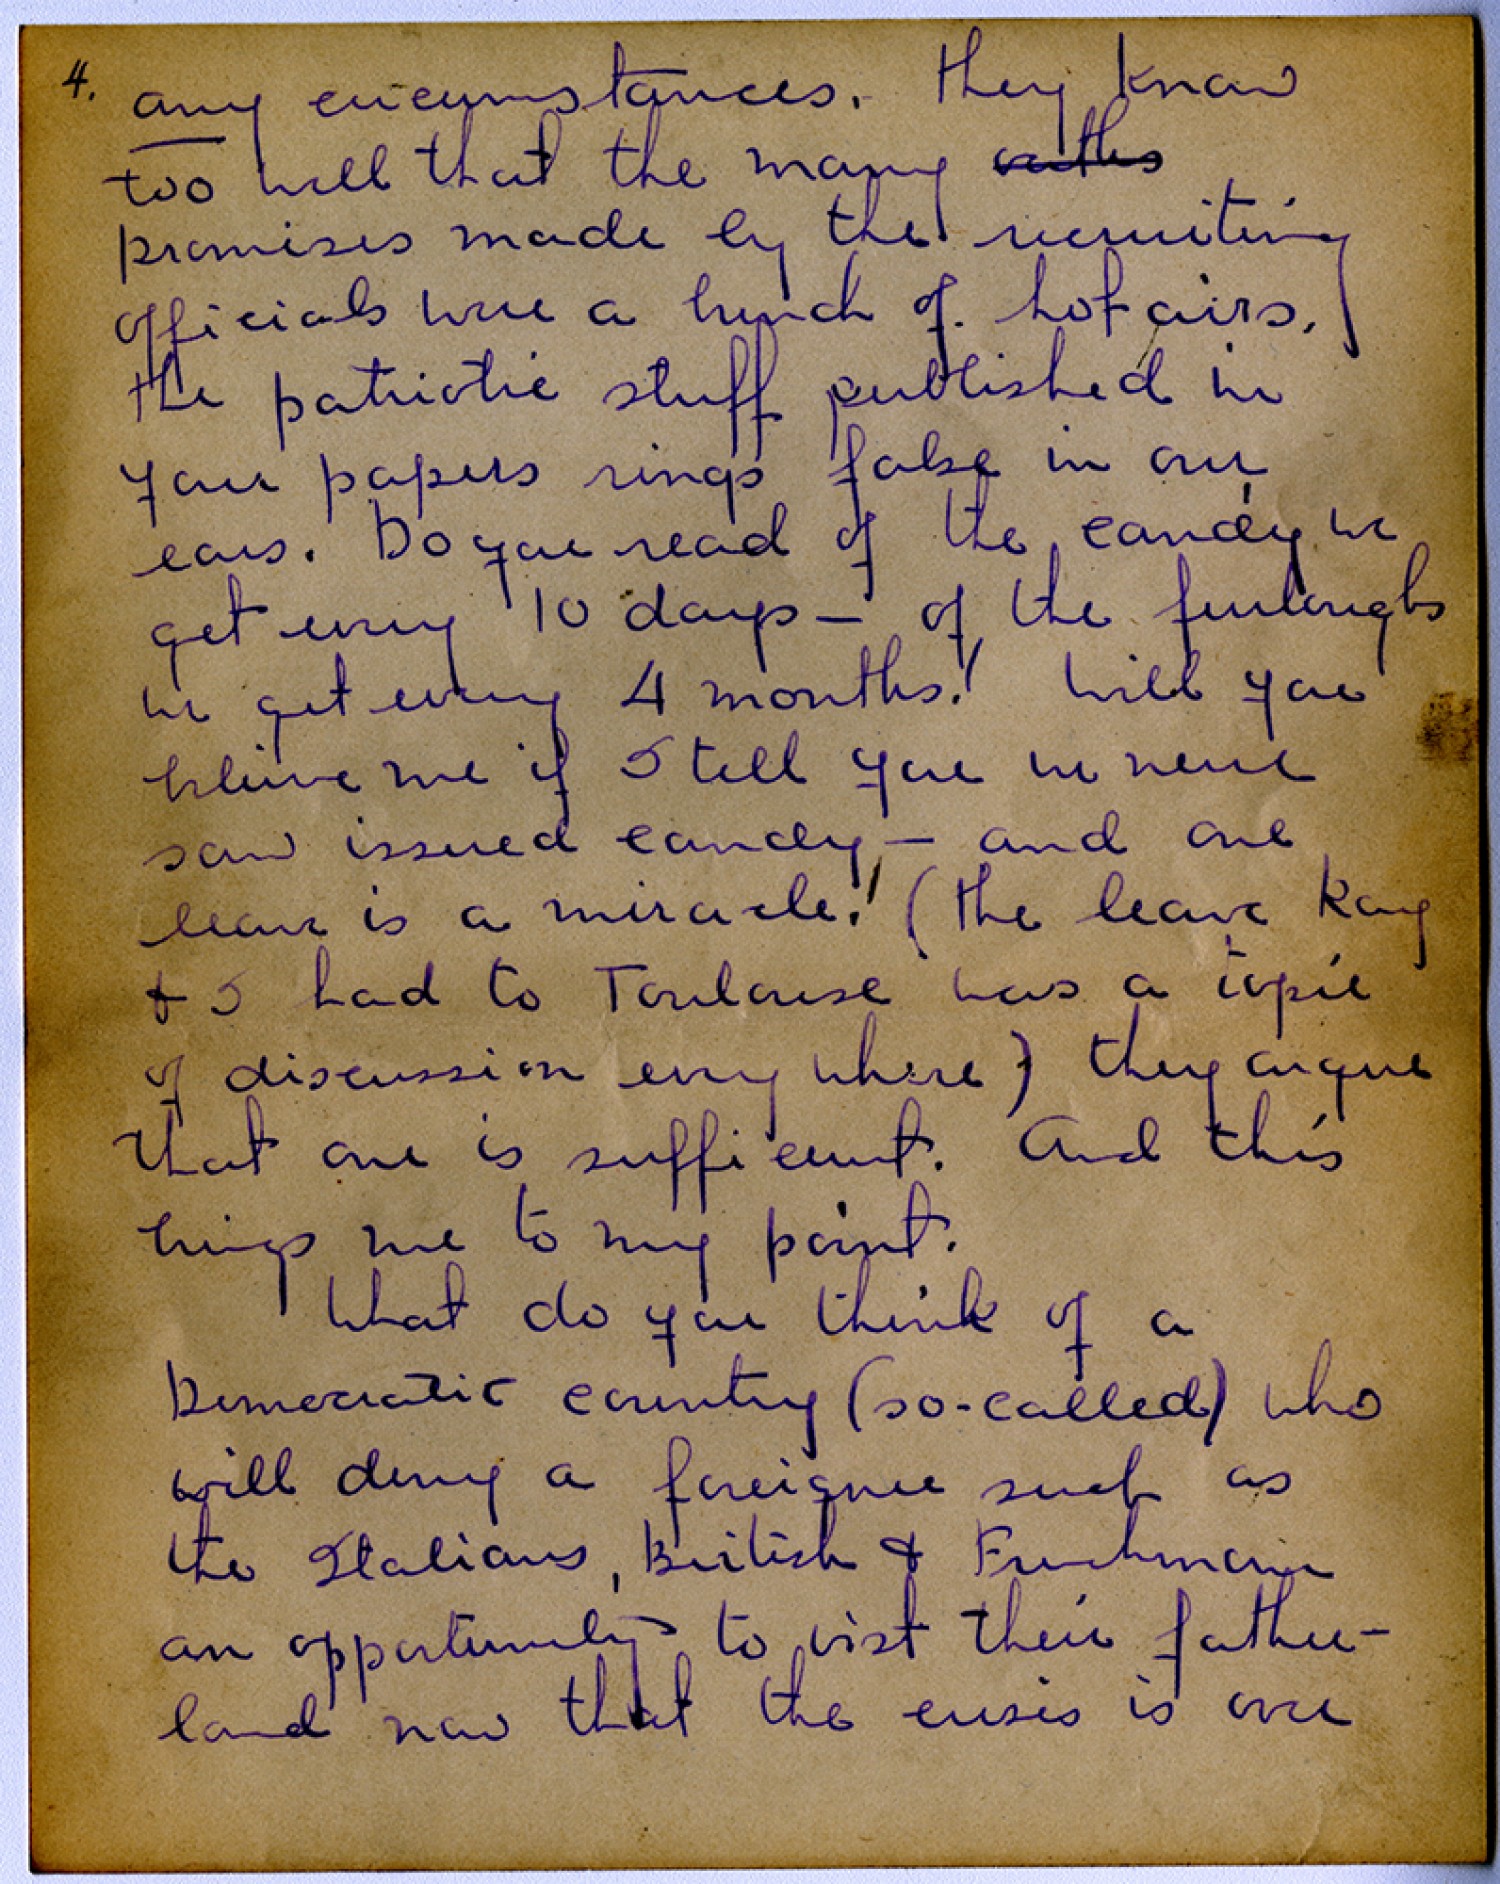 4. any circumstances. They know
too well that the many oaths
promises made by the recruiting
officials were a bunch of. hot airs.
The patriotic stuff published in
your papers rings false in our
ears. Do you read of the candy we
get every 10 days — of the furloughs
we get every 4 months! Will you
believe me if I tell you we never
saw issued candy — and one
leave is a miracle! (The leave Kay
& I had to Toulouse was a topic
of discussion every where) they argue
that one is sufficient. And this
brings me to my point.
What do you think of a
Democratic country (so-called) who
will deny a foreigner such as
the Italians, British &
an opportunity to visit their father-
land now that the crisis is over